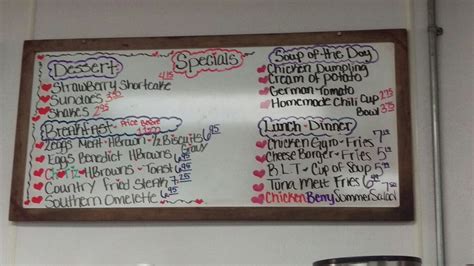 Specials
Dessert
Strawberry Shortcake 4.25
Sundaes 3.50
Shakes 2.95
Soup of the Day
Chicken Dumpling
Cream of potato
German-Tomato
Homemade Chili Cup 2.75
Bowl 3.75
Breakfast Price Before
2 eggs Meat HBrown ½ Biscuits 6.95
Gravy
Eggs Benedict HBrowns 6.95
HBrowns Toast 6.95
Country Fried Steak 7.25
Southern Omelette 6.95
Lunch Dinner
Chicken Gyro Fries 7
Cheese Burger Fries 5
B L T Cup of Soup 5
Tuna Melt Fries 6.95
Chicken Berry Summer Salad 7.50